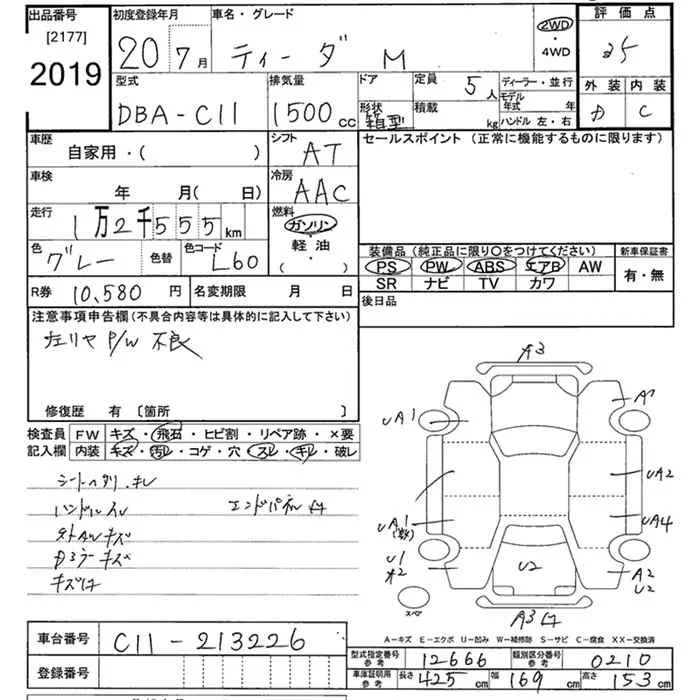 出品番号 初度登録年月 車名・グレード 評価点
[2177] 2019
20年 7月 ティーダ M 2WD ・ 4WD
型式 排気量 ドア 定員 ディーラー・並行 外装 内装
DBA-C11 1500cc 5人 モデル年式 年 D C
形状 箱型 積載 kg ハンドル 左・右
車歴 シフト セールスポイント (正常に機能するものに限ります)
自家用・( ) AT
車検 冷房
年 月( 日) AAC
走行 燃料
1万2千555km ガソリン・軽油 ( ・ )
色 色替 色コード 装備品(純正品に限り○をつけてください) 新車保証書
グレー L60 PS PW ABS エアB AW 有・無
SR ナビ TV カワ
R券 10,580円 名変期限 月 日 後日品
注意事項申告欄(不具合内容等は具体的に記入して下さい)
左リヤ P/W 不良
修復歴 有 [箇所 ]
検査員 FW キズ・飛石・ヒビ割・リペア跡・×要
記入欄 内装 キズ・汚レ・コゲ・穴・スレ・キレ・破レ
ハンドルスレ エンドパネル
キズ
キズ
キズ
A3
UA1
UA2
UA1 UA4
U1 U2 A2
U2
スペア A3
A-キズ E-エクボ U-凹み W-補修跡 S-サビ C-腐食 XX-交換済
車台番号 C11-213226
登録番号
型式指定番号 参考 12666 類別区分番号 参考 0210
車庫証明用 参考 長さ 425cm 幅 169cm 高さ 153cm